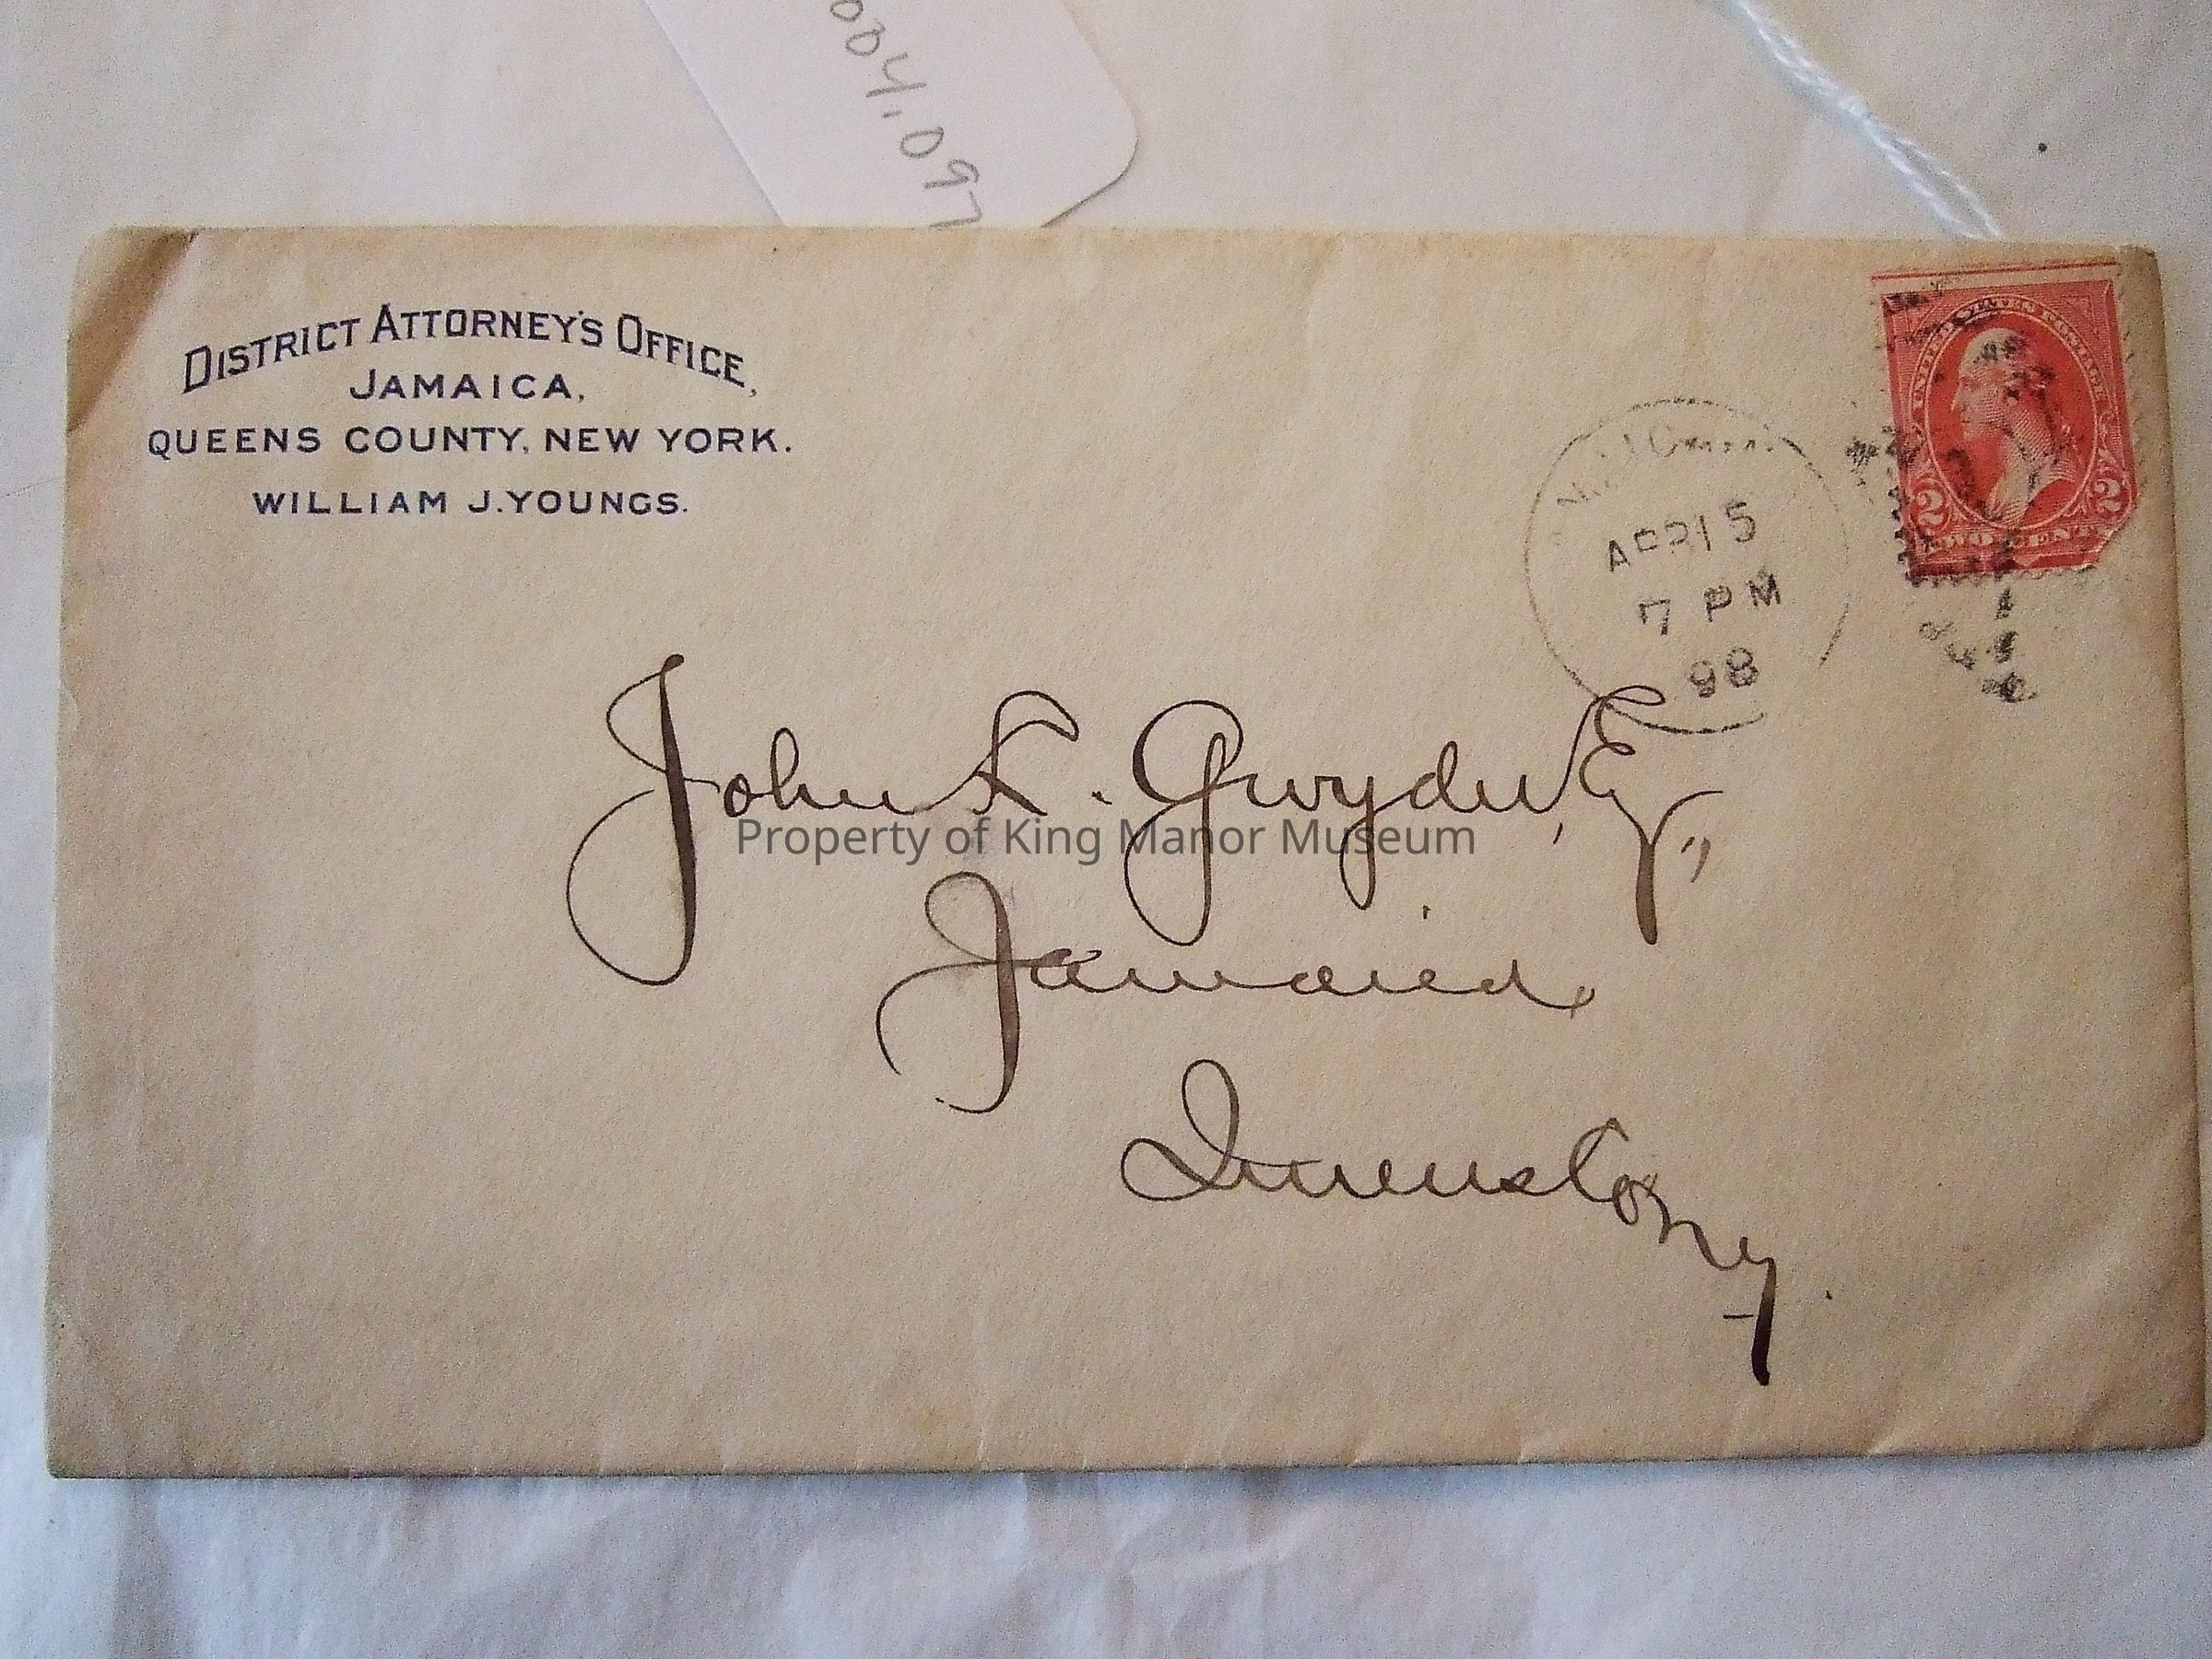 004.097
DISTRICT ATTORNEY'S OFFICE,
JAMAICA,
QUEENS COUNTY, NEW YORK.
WILLIAM J. YOUNGS.
APR 15
7 PM
98
2 2
TWO CENTS
John K. Gwydir, Esq.,
Property of King Manor Museum
Jamaica,
Queens Co
N Y.